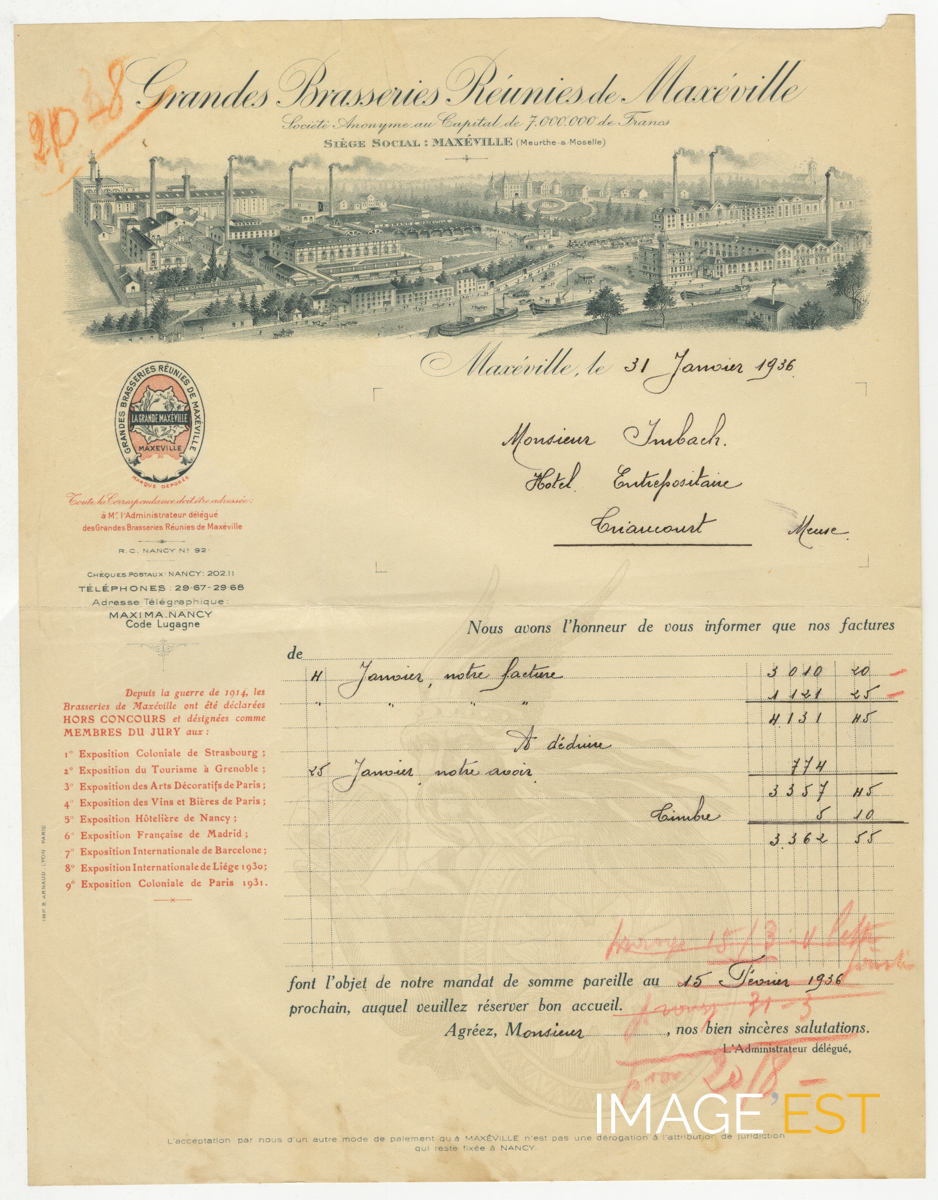 2p 38
Grandes Brasseries Réunies de Maxéville
Société Anonyme au Capital de 7.000.000 de Francs
SIÈGE SOCIAL : MAXÉVILLE (Meurthe-&-Moselle)
Maxéville, le 31 Janvier 1936.
GRANDES BRASSERIES RÉUNIES DE MAXÉVILLE
LA GRANDE MAXÉVILLE
MAXEVILLE
MARQUE DÉPOSÉE
Monsieur Imbach.
Hotel Entrepositaire
Triaucourt Meuse.
Toute la Correspondance doit être adressée :
à Mr. l'Administrateur délégué
des Grandes Brasseries Réunies de Maxéville
R.C. NANCY No 92
CHÈQUES POSTAUX: NANCY: 202.11
TÉLÉPHONES : 29-67 - 29-68
Adresse Télégraphique :
MAXIMA.NANCY
Code Lugagne
Depuis la guerre de 1914, les
Brasseries de Maxéville ont été déclarées
HORS CONCOURS et désignées comme
MEMBRES DU JURY aux :
1o Exposition Coloniale de Strasbourg ;
2o Exposition du Tourisme à Grenoble ;
3o Exposition des Arts Décoratifs de Paris ;
4o Exposition des Vins et Bières de Paris ;
5o Exposition Hôtelière de Nancy ;
6o Exposition Française de Madrid ;
7o Exposition Internationale de Barcelone ;
8o Exposition Internationale de Liége 1930;
9o Exposition Coloniale de Paris 1931.
IMP. B. ARNAUD. LYON. PARIS
Nous avons l'honneur de vous informer que nos factures
de
4 Janvier, notre facture 3010 20
" " " " 1121 25
4131 45
A déduire
25 Janvier, notre avoir. 774
3357 45
Timbre 5 10
3362 55
15/3
font l'objet de notre mandat de somme pareille au 15 Février 1936
prochain, auquel veuillez réserver bon accueil.
31-3
Agréez, Monsieur, nos bien sincères salutations.
L'Administrateur délégué,
IMAGE EST
L'acceptation par nous d'un autre mode de paiement qu'à MAXÉVILLE n'est pas une dérogation à l'attribution de juridiction
qui reste fixée à NANCY.